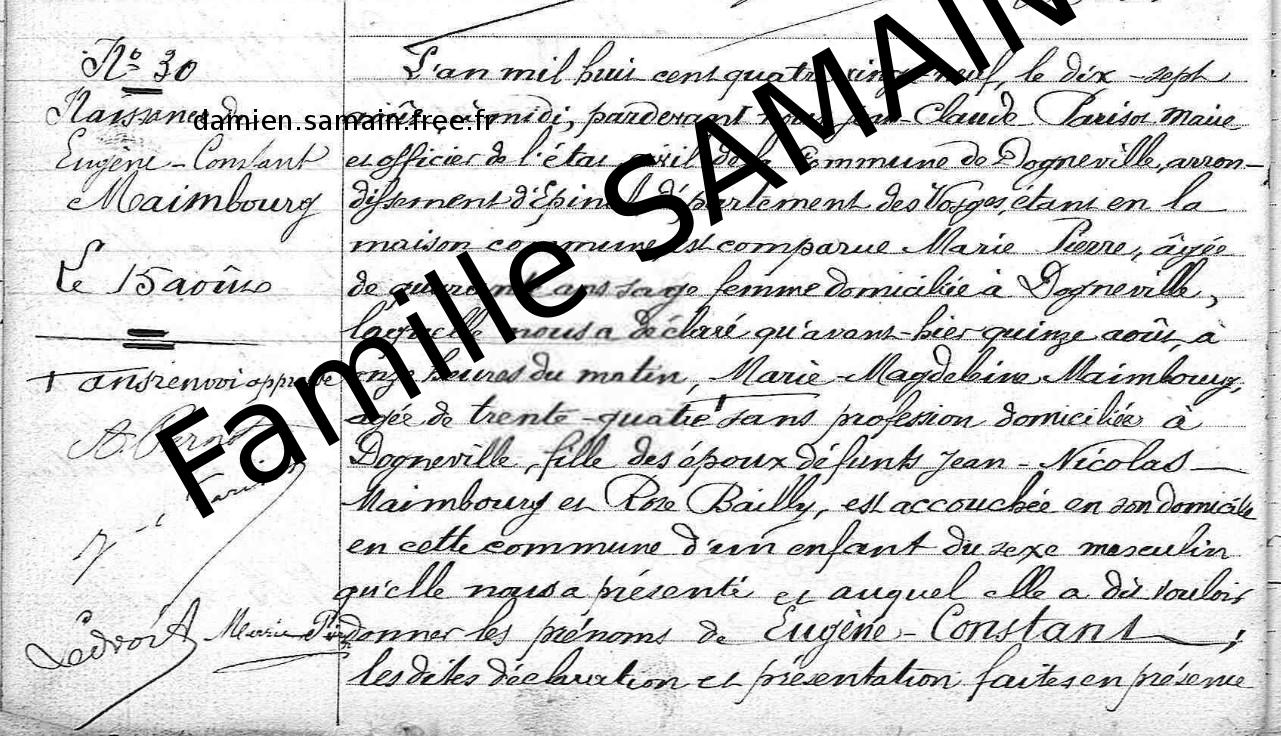 N° 30
Naissance de
Eugène-Constant
Maimbourg
Le 15 août
+ ans renvoi approuvé
A. Pernot
Parisot
Ledroit
Marie Pierre
L'an mil huit cent quatre vingt neuf, le dix-sept
août à midi, pardevant nous Jean-Claude Parisot maire
et officier de l'état civil de la Commune de Dogneville, arron-
dissement d'Epinal, département des Vosges, étant en la
maison commune est comparue Marie Pierre, âgée
de ans sage femme domiciliée à Dogneville,
laquelle nous a déclaré qu'avant-hier quinze août, à
onze heures du matin, Marie-Magdeleine Maimbourg,
agée de trente-quatre + sans profession domiciliée à
Dogneville, fille des époux défunts Jean-Nicolas
Maimbourg et Rose Bailly, est accouchée en son domicile
en cette commune d'un enfant du sexe masculin
qu'elle nous a présenté et auquel elle a dit vouloir
donner les prénoms de Eugène-Constant ;
les dites déclaration et présentation faites en présence
damien.samain.free.fr
Famille SAMAIN